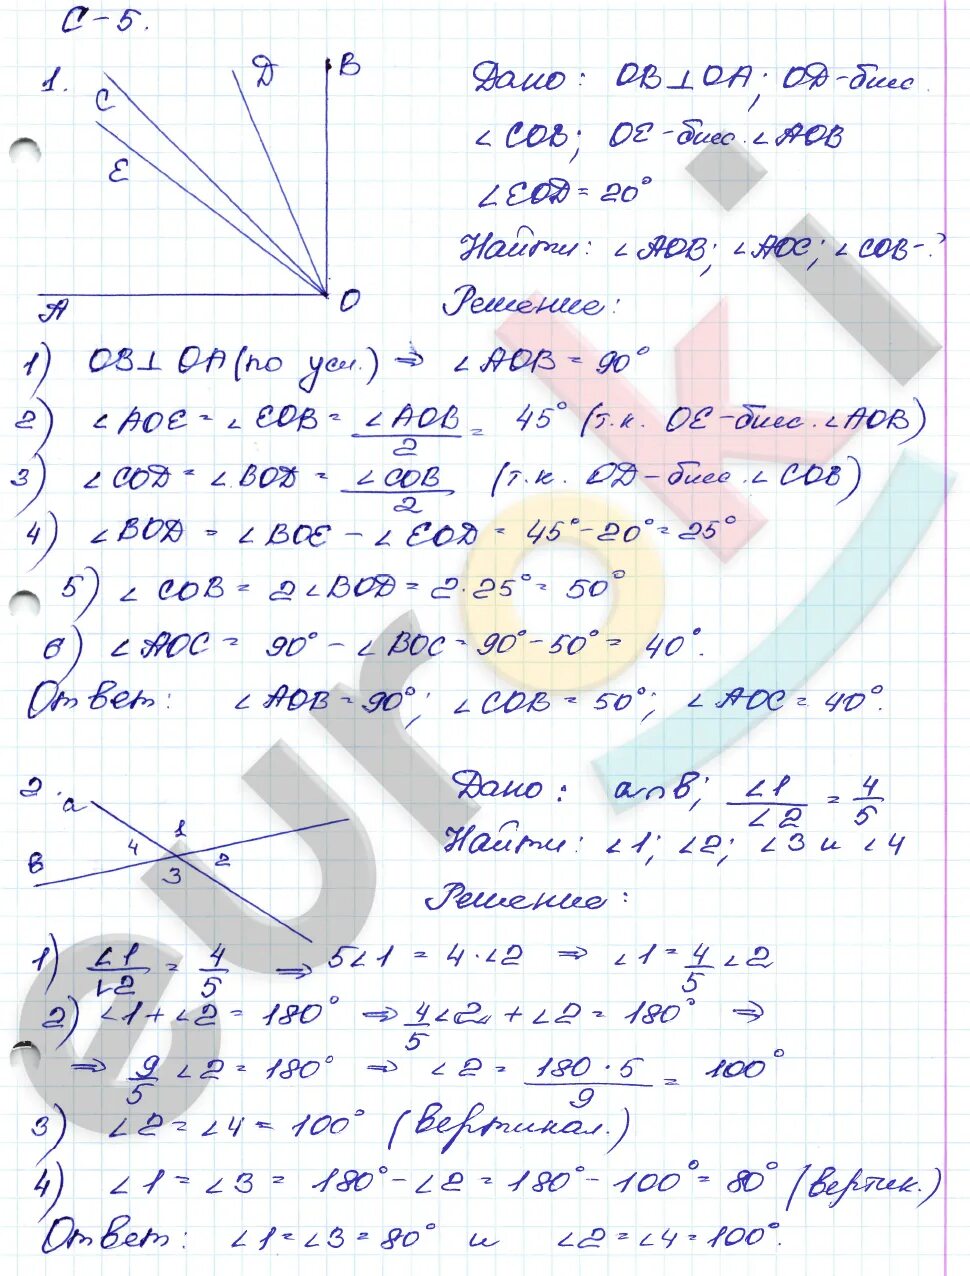 С-5.
1.
C
E
Д
B
A
O
Дано: OB⊥OA; OД-бисс.
∠COB; OE-бисс.∠AOB
∠EOД=20°
Найти: ∠AOB; ∠AOC; ∠COB-?
Решение:
1) OB⊥OA(по усл.) ⇒ ∠AOB = 90°
2) ∠AOE = ∠EOB = ∠AOB/2 = 45° (т.к. OE-бисс.∠AOB)
3) ∠COД = ∠BOД = ∠COB/2 (т.к. OД-бисс.∠COB)
4) ∠BOД = ∠BOE - ∠EOД = 45°-20°=25°
5) ∠COB = 2∠BOД = 2·25°= 50°
6) ∠AOC = 90° - ∠BOC = 90°-50°= 40°.
Ответ: ∠AOB = 90°; ∠COB = 50°; ∠AOC = 40°.
2.
a
в
1
4
2
3
Дано: a∩в; ∠1/∠2 = 4/5
Найти: ∠1; ∠2; ∠3 и ∠4
Решение:
1) ∠1/∠2 = 4/5 ⇒ 5∠1 = 4·∠2 ⇒ ∠1 = 4/5 ∠2
2) ∠1+∠2 = 180° ⇒ 4/5∠2 + ∠2 = 180° ⇒
⇒ 9/5 ∠2 = 180° ⇒ ∠2 = 180·5/9 = 100°
3) ∠2 = ∠4 = 100° (вертикал.)
4) ∠1 = ∠3 = 180°-∠2 = 180°-100° = 80° (вертик.)
Ответ: ∠1=∠3=80° и ∠2=∠4=100°.
euroki